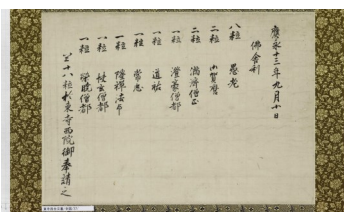 應永十三年九月十日
佛舍利
八粒 愚老
二粒 山賀丸
二粒 満済僧正
一粒 澄豪僧都
一粒 道祐
一粒 常忠
一粒 隆禅法印
一粒 杲玄僧都
一粒 榮暁僧都
以上十八粒於東寺西院御奉請之